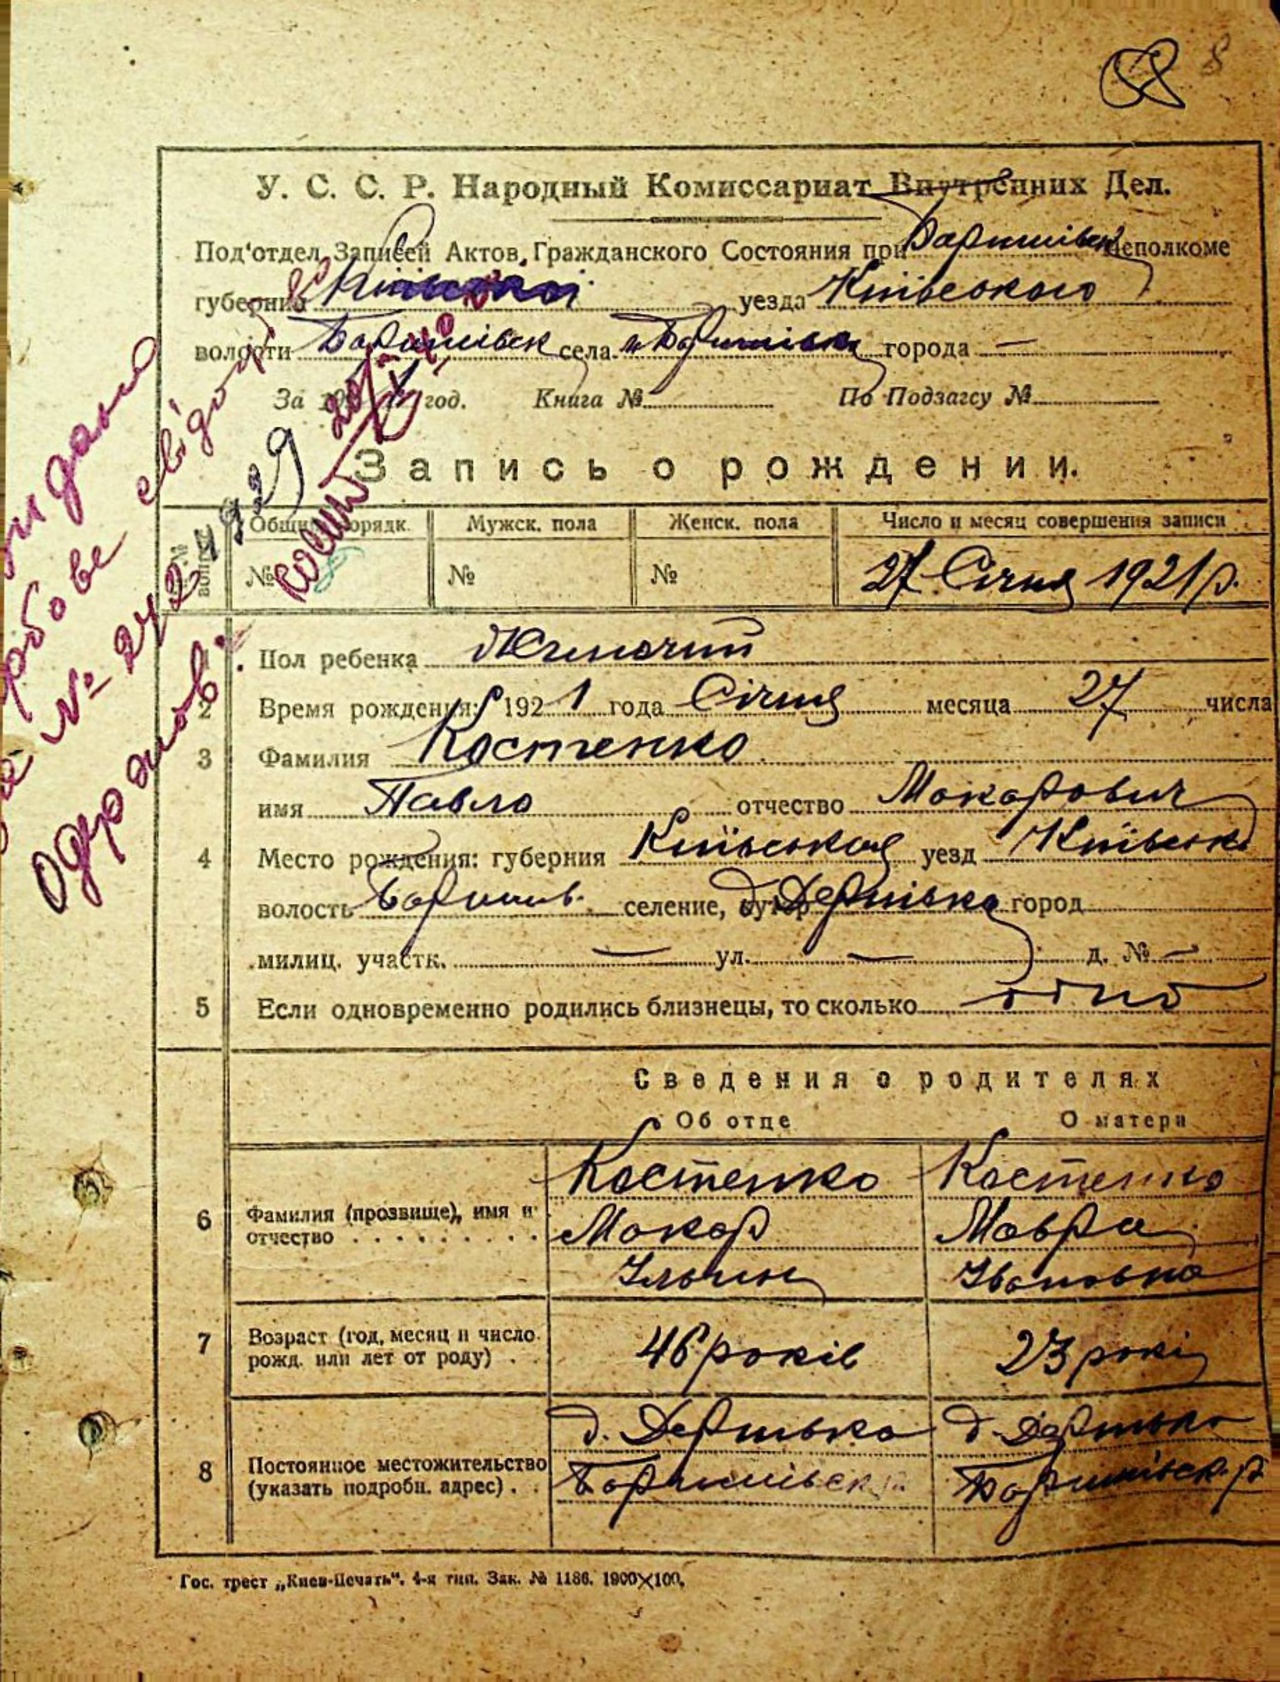 8
У. С. С. Р. Народный Комиссариат Внутренних Дел.
Под'отдел Записей Актов Гражданского Состояния при Баришівск Исполкоме
губернии Київської уезда Київського
волости Баришівск села м. Баришівка города —
За 192 год. Книга № По Подзагсу №
Запись о рождении.
Общий порядк. Мужск. пола Женск. пола Число и месяц совершения записи
№ № № 27 Січня 1921 р.
1 Пол ребенка
2 Время рождения: 1921 года Січня месяца 27 числа
3 Фамилия Костенко
имя Павло отчество Макарович
4 Место рождения: губерния Київськая уезд Київськ
волость Баришів. селение, хутор д. Дернівка город
милиц. участк. — ул. — д. № —
5 Если одновременно родились близнецы, то сколько
Сведения о родителях
Об отце О матери
6 Фамилия (прозвище), имя и отчество
Костенко Костенко
Макар Мавра
Ільїн Івановна
7 Возраст (год, месяц и число рожд. или лет от роду)
46 років 23 років
8 Постоянное местожительство (указать подробн. адрес)
д. Дернівка д. Дернівка
Баришівск. р. Баришівск. р.
Гос. трест „Киев-Печать". 4-я тип. Зак. № 1186. 1900×100.
видано
№ 272 1929
Одержав